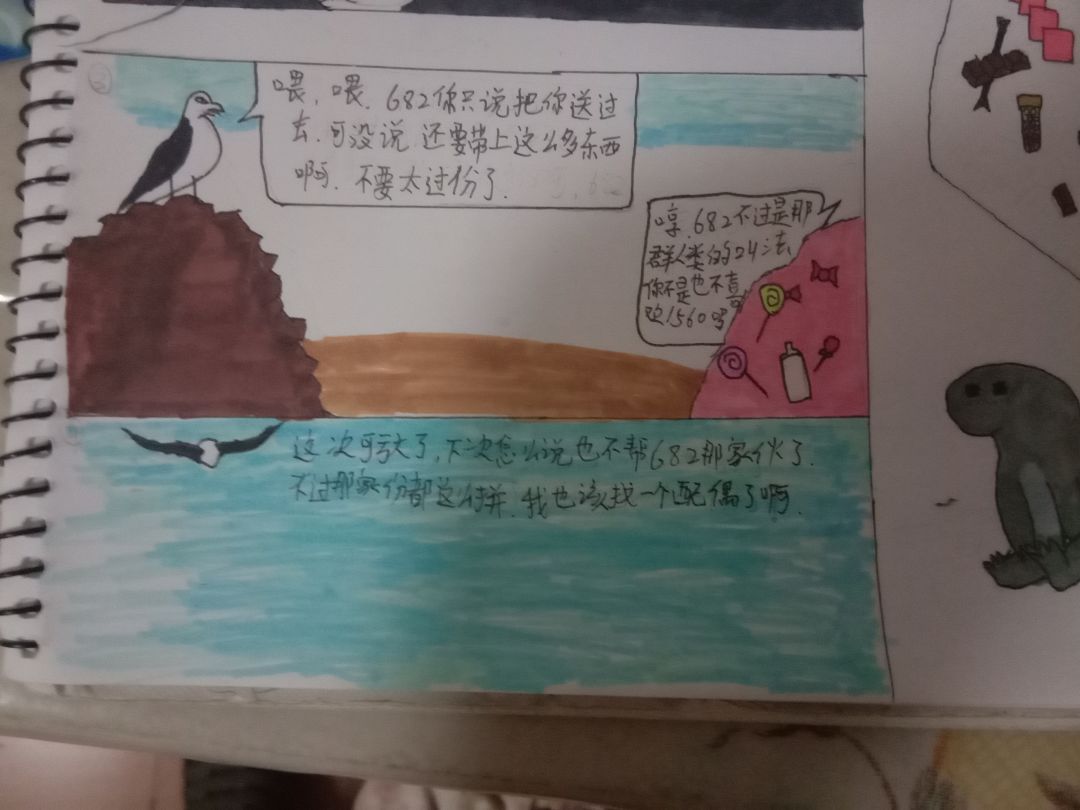 喂，喂．682你只说把你送过
去．可没说．还要带上这么多东西
啊．不要太过份了．
哼．682不过是那
群人类的叫法
你不是也不喜
欢1560吗
这次可亏大了，下次怎么说也不帮682那家伙了．
不过那家份都这么拼．我也该找一个配偶了啊．